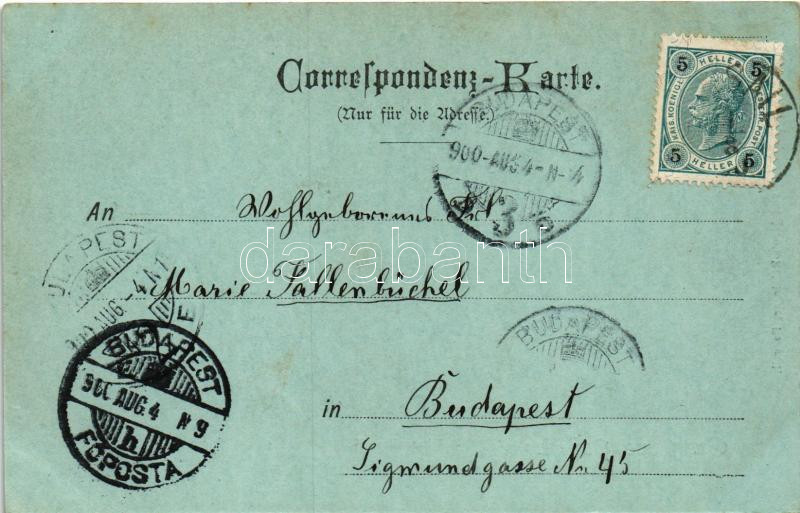 Correspondenz-Karte.
(Nur für die Adresse.)
5 HELLER 5
KAIS. KOENIGL.
5 HELLER 5
BUDAPEST
900-AUG 4-N-4
3
An Wohlgeborenes Frl.
Marie Fallenbüchel
in Budapest
Sigmundgasse No 45
BUDAPEST
AUG.-4
BUDAPEST
900 AUG. 4 N 9
h
FŐPOSTA
BUDAPEST
darabanth